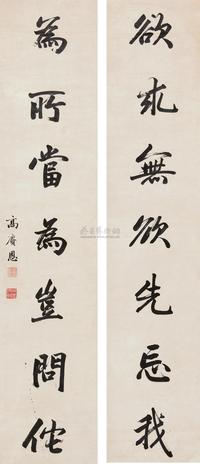 欲求無欲先忘我
為所當為豈問佗
高賡恩